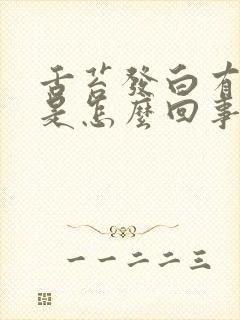 舌苔發白有
是怎麼回事
一一二二三